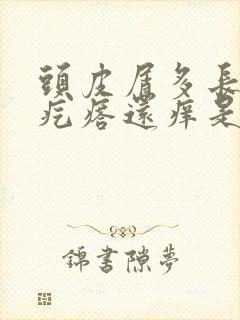 頭皮屑多長
疙瘩還癢是
錦書隙夢